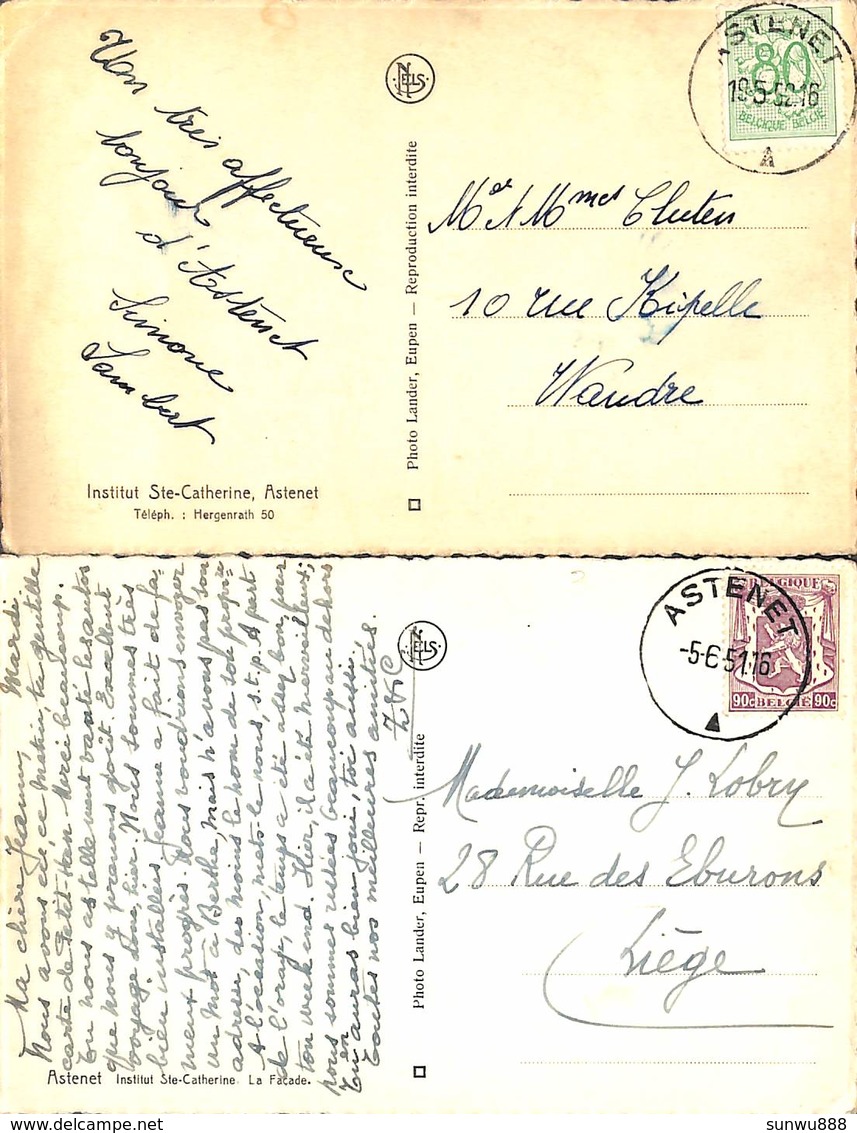 Un très affectueux
bonjour
d'Astenet
Simone
Lambert
NELS
Institut Ste-Catherine, Astenet
Téléph. : Hergenrath 50
Photo Lander, Eupen — Reproduction interdite
ASTENET
19-5-52.16
A
80
BELGIQUE-BELGIE
10 rue Kipelle
Wandre
Mardi
Ma chère Jeanny,
Nous avons eu, ce matin, ta gentille
carte de Merci beaucoup.
Tu nous as tellement vanté les autos
que nous y prenons goût. Excellent
voyage donc, hier. Nous sommes très
bien installées, Jeanne a fait de fa-
meux progrès. Nous voudrions envoyer
un mot à Berthe, mais n'avons pas son
adresse, du moins le nom de son proprié
A l'occasion, mets-le nous, s.t.p. A part
de l'orage, le temps a été assez bon pour
ton week end. Hier, il a été merveilleux;
nous sommes restées beaucoup au dehors
Tu en auras bien joui, toi aussi.
Toutes nos meilleures amitiés.
Astenet Institut Ste-Catherine La Façade.
NELS
Photo Lander, Eupen — Repr. interdite
ASTENET
-5-6-51.16
BELGIQUE
90c BELGIE 90c
Mademoiselle J. Lobry
28 Rue des Eburons
Liège
sunwu888